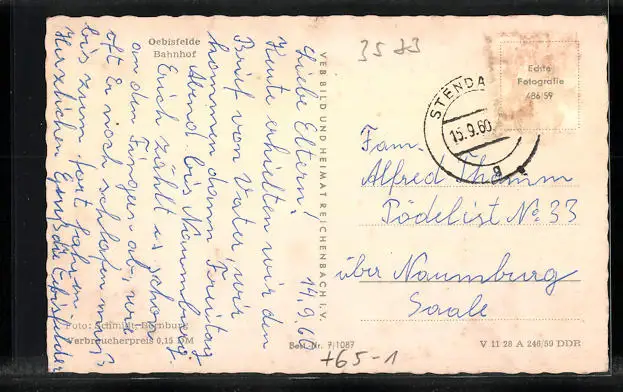 Oebisfelde
Bahnhof
14.9.60
Liebe Eltern!
Heute erhielten wir den
Brief von Vater, wir
kommen dann Freitag
Abend bis Naumburg.
Erich zählt es schon
an den Fingern ab, wie
oft Er noch schlafen muß
bis zum fortfahren
Herzlichen Gruß die Öbisfelder
Foto: Schmidt, Bernburg
Verbraucherpreis 0,15 DM
VEB BILD UND HEIMAT REICHENBACH I. V.
Best.-Nr. 7/1087
+65-1
3583
STENDA
15.9.60
g
Echte
Fotografie
486/59
Fam.
Alfred Thamm
Pödelist No. 33
über Naumburg
Saale
V 11 28 A 246/59 DDR